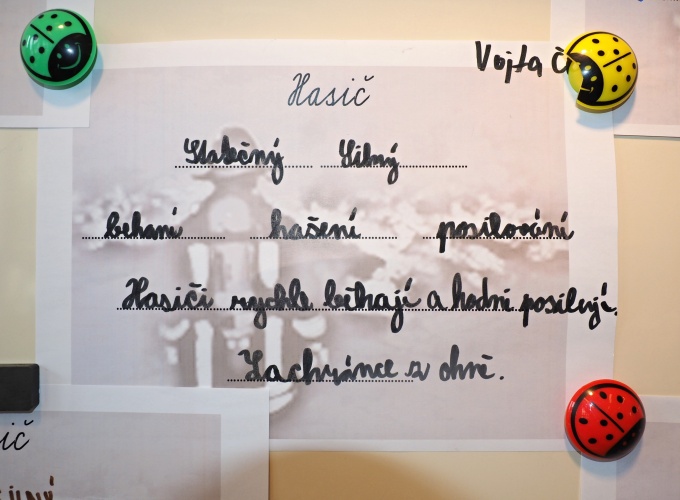 Vojta Č
Hasič
Statečný Silný
behaní hašení posilování
Hasiči rychle běhají a hodně posilují.
Zachránce z ohně.
ič